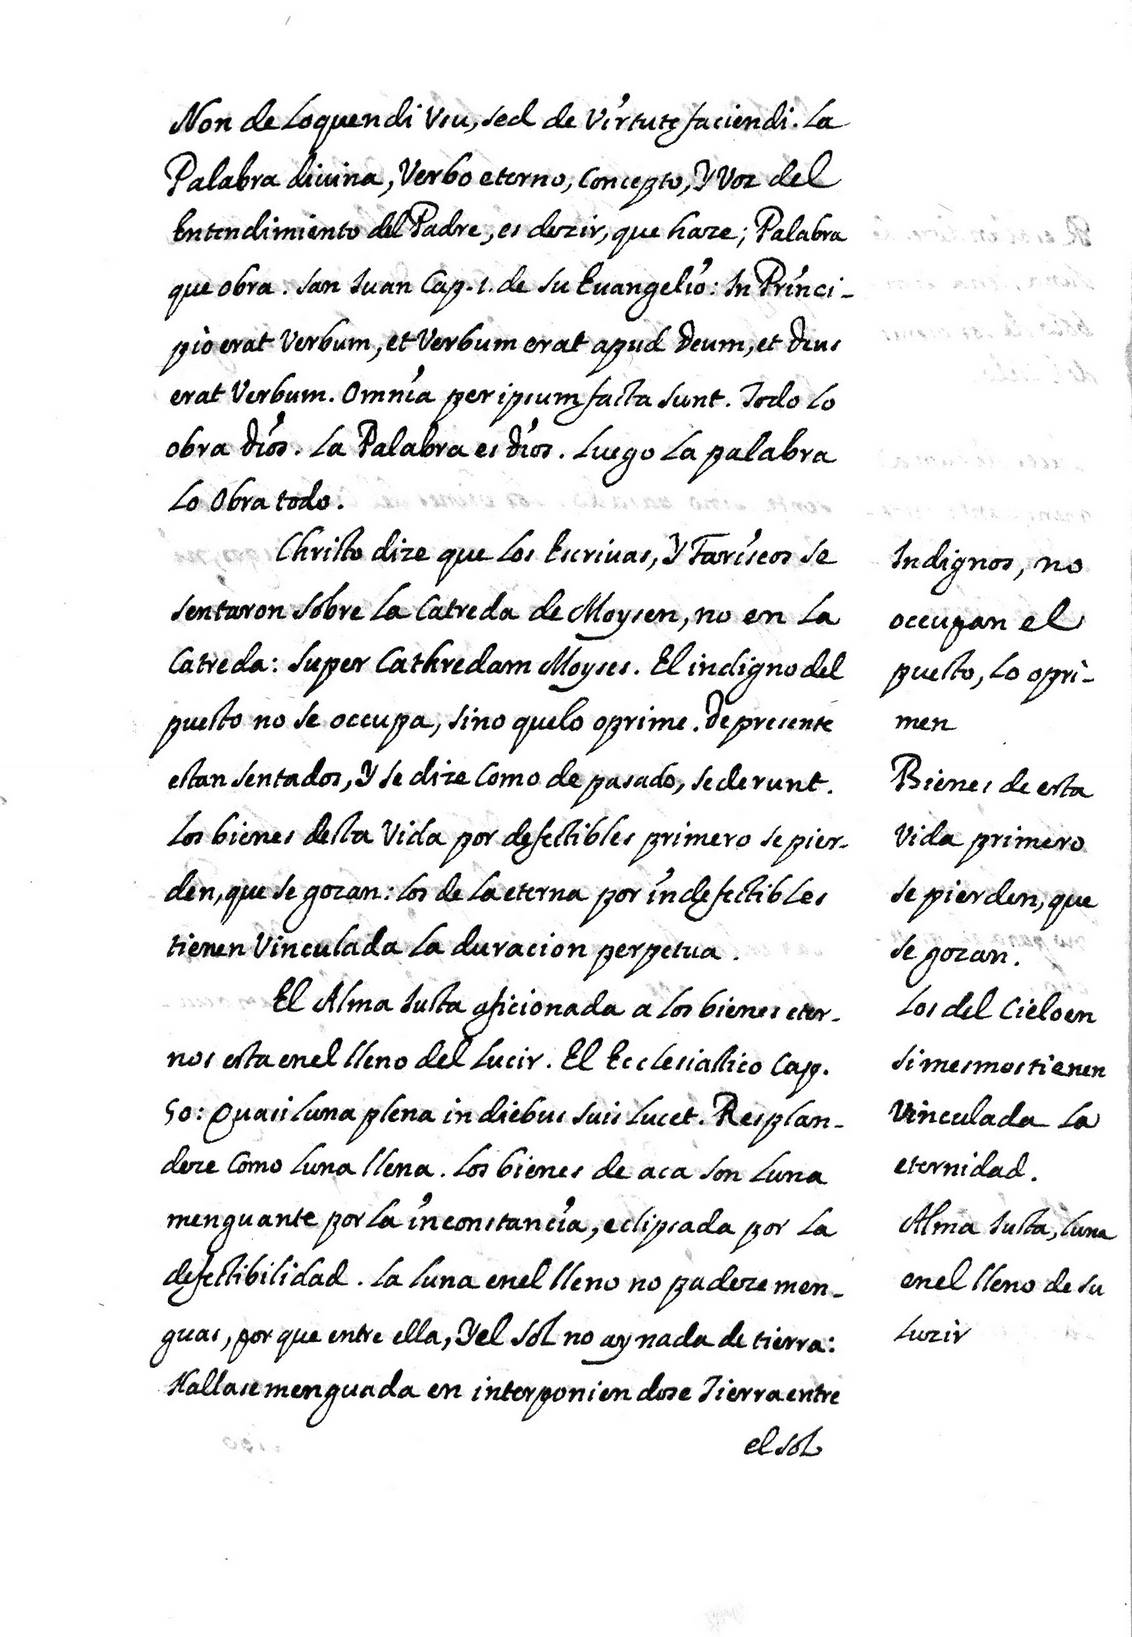 Non de Loquendi Vsu, sed de Virtute faciendi. La
Palabra divina, Verbo eterno, Concepto, Y Voz del
Entendimiento del Padre, es dezir, que haze; Palabra
que obra. San Iuan Cap. 1. de su Euangelio: In Princi-
pio erat Verbum, et Verbum erat apud Deum, et Deus
erat Verbum. Omnia per ipsum facta sunt. Todo lo
obra Dios. La Palabra es Dios. Luego La palabra
Lo Obra todo.
Christo dize que Los Escrivas, Y Fariseos se
sentaron sobre La Catreda de Moysen, no en La
Catreda: Super Cathredam Moyses. El indigno del
puesto no se occupa, sino quelo oprime. De presente
estan sentados, Y se dize Como de pasado, sederunt.
Los bienes desta Vida por defectibles primero se pier-
den, que se gozan: los de La eterna por indefectibles
tienen Vinculada La duracion perpetua.
El Alma Iusta aficionada a Los bienes eter-
nos esta enel lleno del Lucir. El Ecclesiastico Cap.
50: Quasi Luna plena in diebus suis Lucet. Resplan-
deze Como Luna llena. Los bienes de aca son Luna
menguante por La inconstancia, eclipsada por La
defectibilidad. La Luna enel lleno no padeze men-
guas, por que entre ella, Y el Sol no ay nada de tierra:
Hallase menguada en interponiendose Tierra entre
el Sol
Indignos, no
occupan el
puesto, Lo opri-
men
Bienes de esta
Vida primero
se pierden, que
se gozan.
Los del Cielo en
si mesmos tienen
Vinculada La
eternidad.
Alma Iusta, Luna
enel lleno de su
Luzir